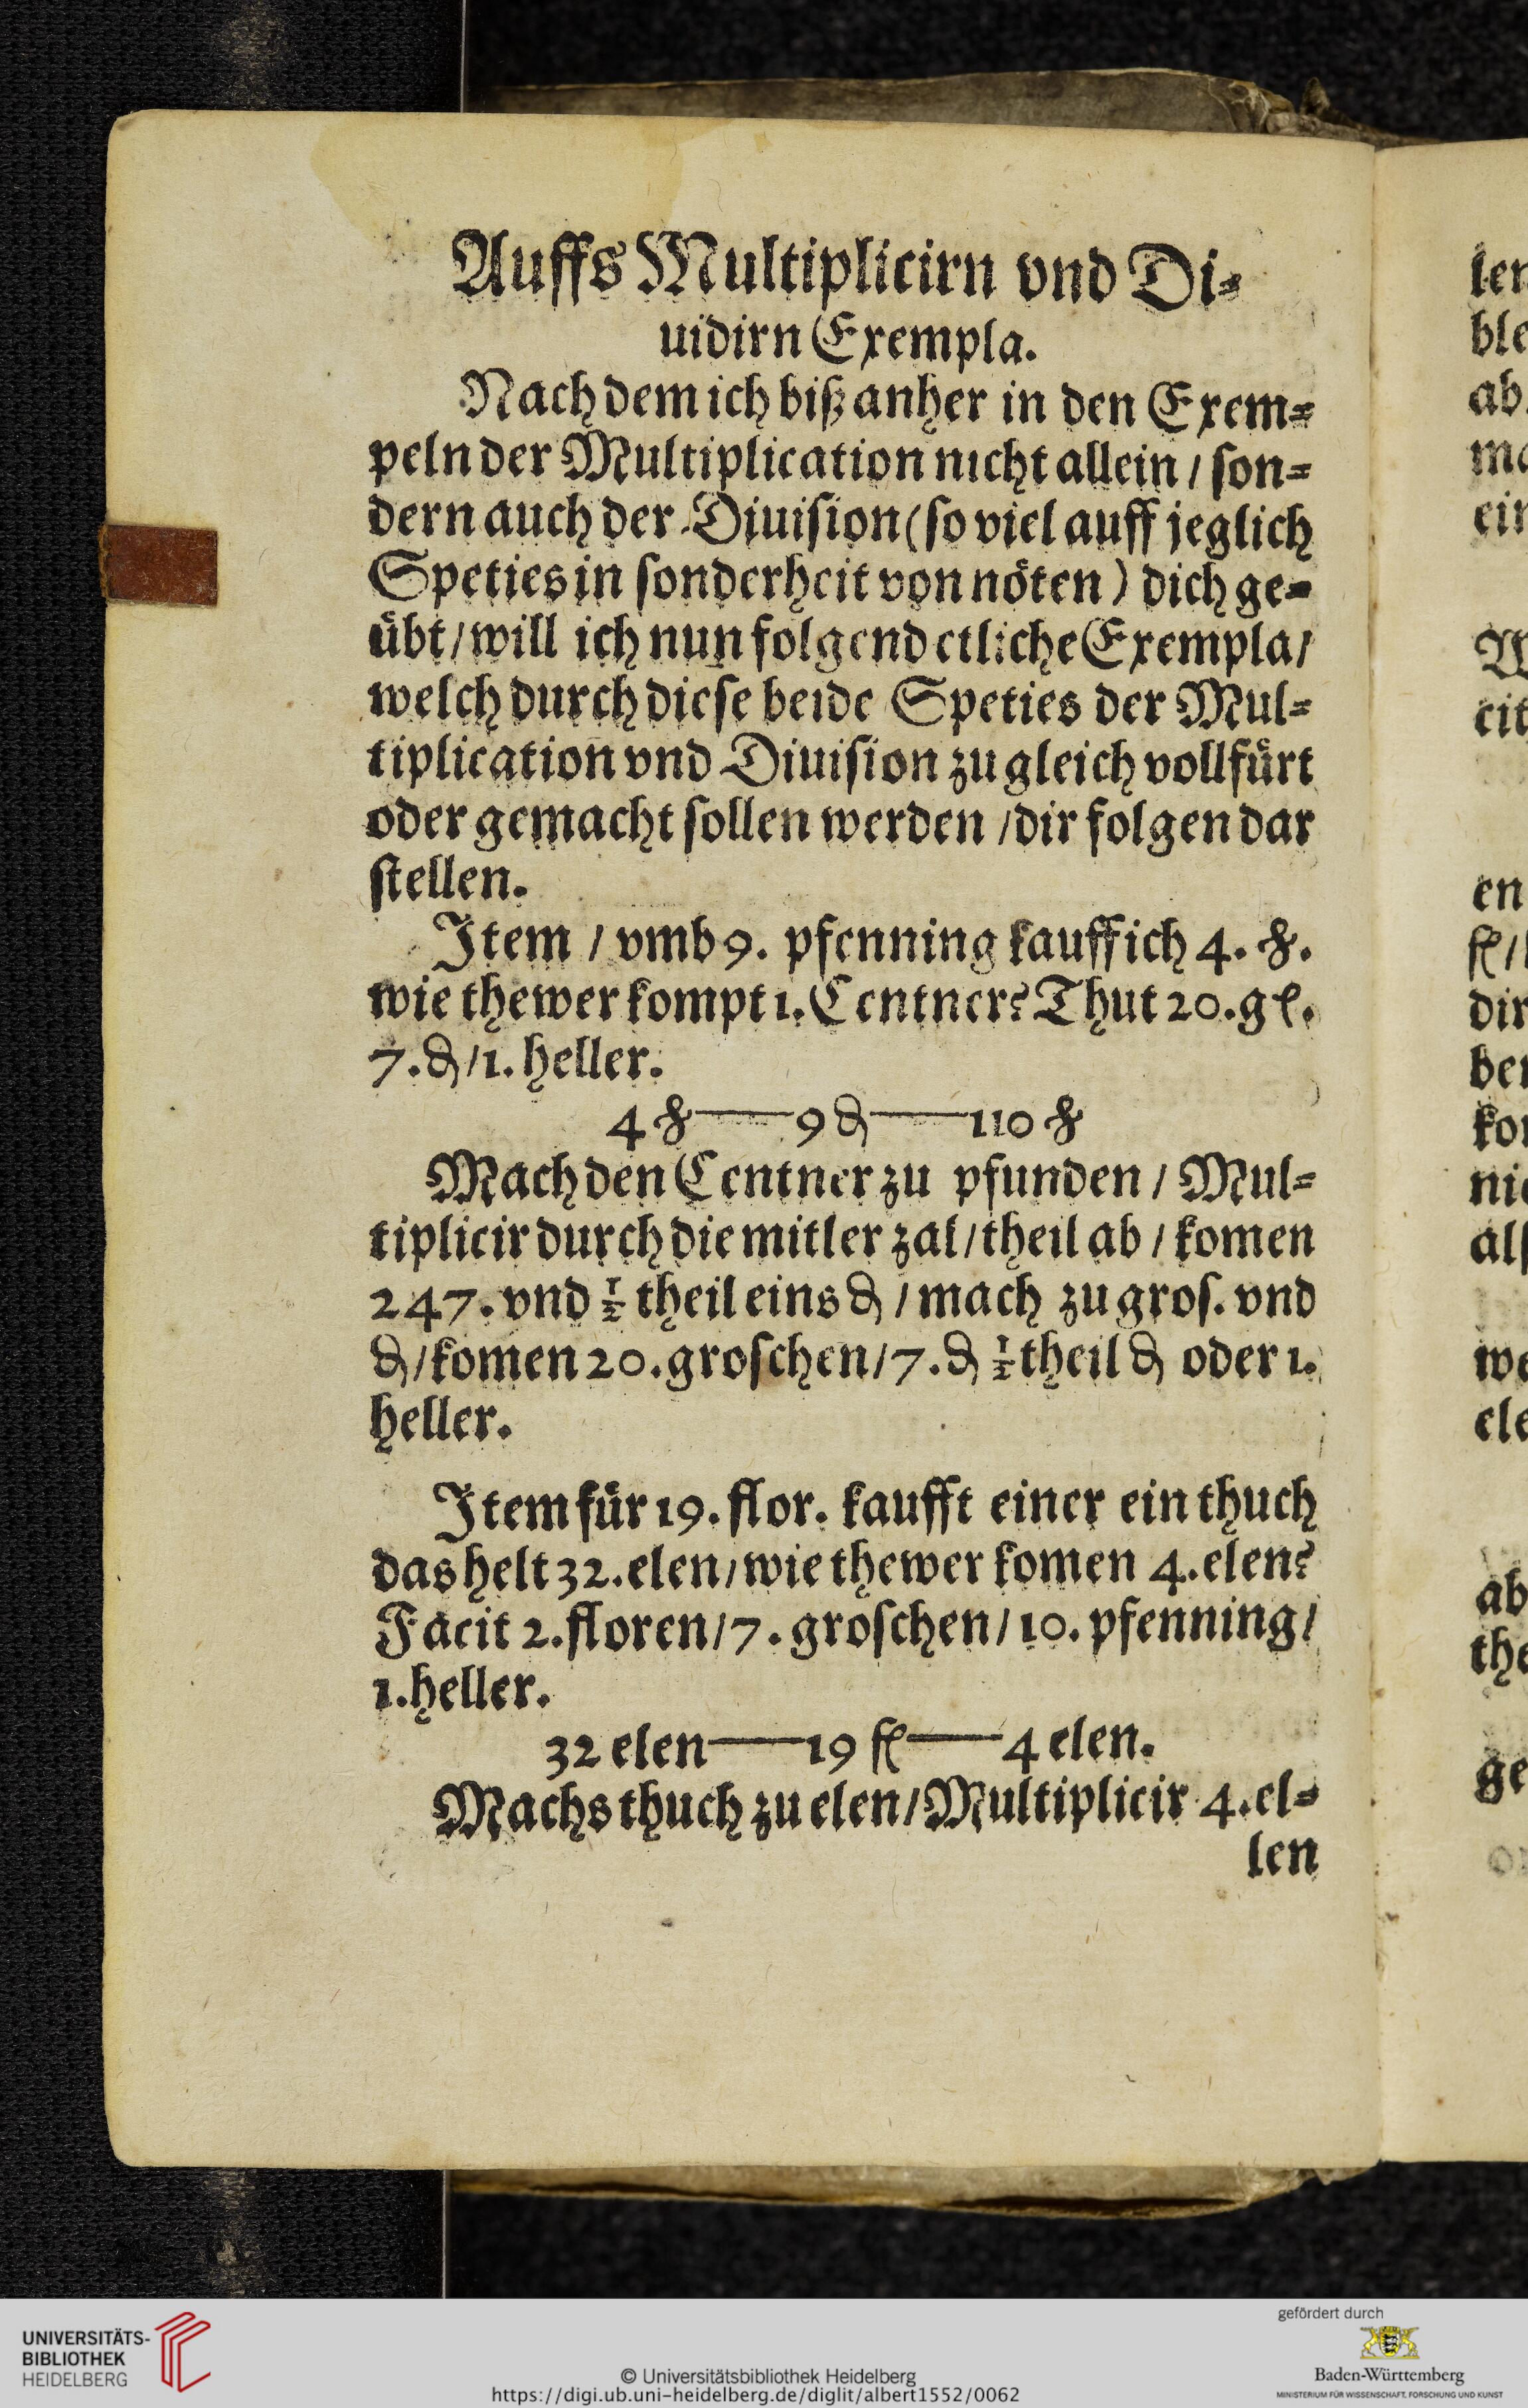 Auffs Multiplicirn vnd Di⸗
uidirn Exempla.
Nach dem ich biß anher in den Exem⸗
peln der Multiplication nicht allein / son⸗
dern auch der Diuision (so viel auff jeglich
Speties in sonderheit von nöten) dich ge⸗
übt / will ich nun folgend etliche Exempla /
welch durch diese beide Speties der Mul⸗
tiplication vnd Diuision zu gleich vollfürt
oder gemacht sollen werden / dir folgen dar
stellen.
Item / vmb 9. pfenning kauff ich 4. ℔.
wie thewer kompt 1. Centner? Thut 20. gl.
7. ₰ / 1. heller.
4 ℔ —— 9 ₰ —— 110 ℔
Mach den Centner zu pfunden / Mul⸗
tiplicir durch die mitler zal / theil ab / komen
247. vnd ½ theil eins ₰ / mach zu gros. vnd
₰ / komen 20. groschen / 7. ₰ ½ theil ₰ oder 1.
heller.
Item für 19. flor. kaufft einer ein thuch
das helt 32. elen / wie thewer komen 4. elen?
Facit 2. floren / 7. groschen / 10. pfenning /
1. heller.
32 elen —— 19 fl —— 4 elen.
Machs thuch zu elen / Multiplicir 4. el⸗
len
ble
ab.
ein
cit
en
fl /
dir
ben
nic
als
we
ele
ab
the
ge
UNIVERSITÄTS-
BIBLIOTHEK
HEIDELBERG
© Universitätsbibliothek Heidelberg
https://digi.ub.uni-heidelberg.de/diglit/albert1552/0062
gefördert durch
Baden-Württemberg
MINISTERIUM FÜR WISSENSCHAFT, FORSCHUNG UND KUNST